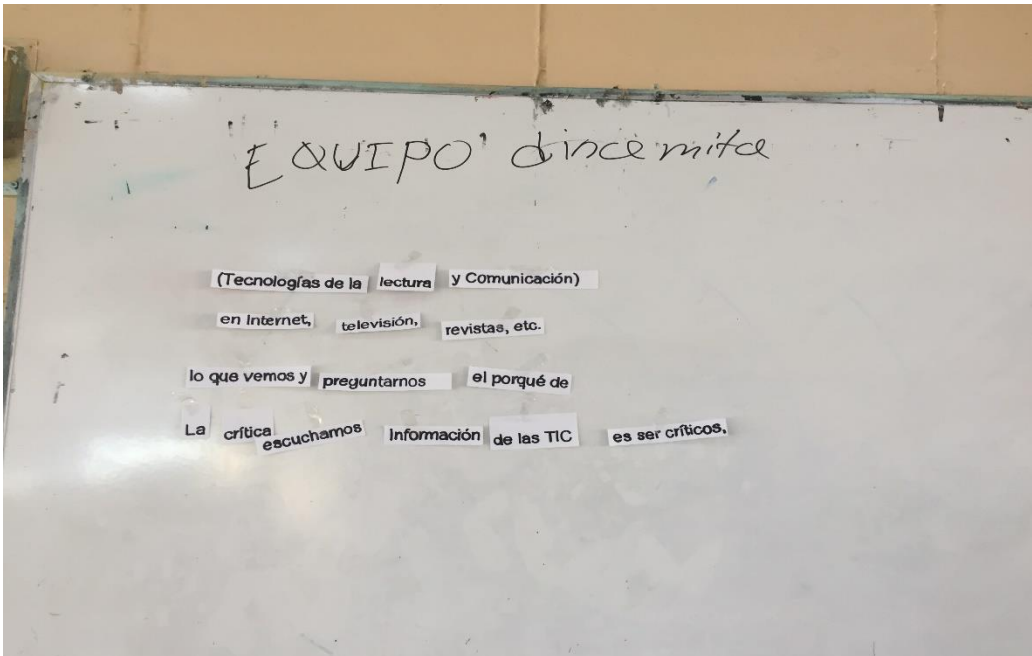 EQUIPO dinamita
(Tecnologías de la lectura y Comunicación)
en Internet, televisión, revistas, etc.
lo que vemos y preguntarnos el porqué de
La crítica escuchamos Información de las TIC es ser críticos,